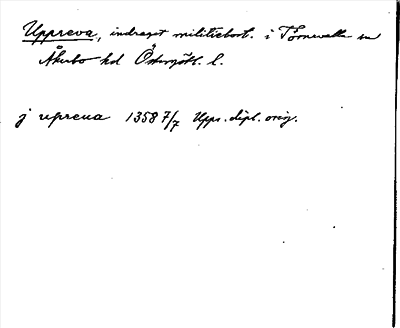 Uppreva, indraget militiebost. i Törnevalla sn
Åkerbo hd Östergötl. l.
j vprewa 1358 7/7 Upps. dipl. orig.